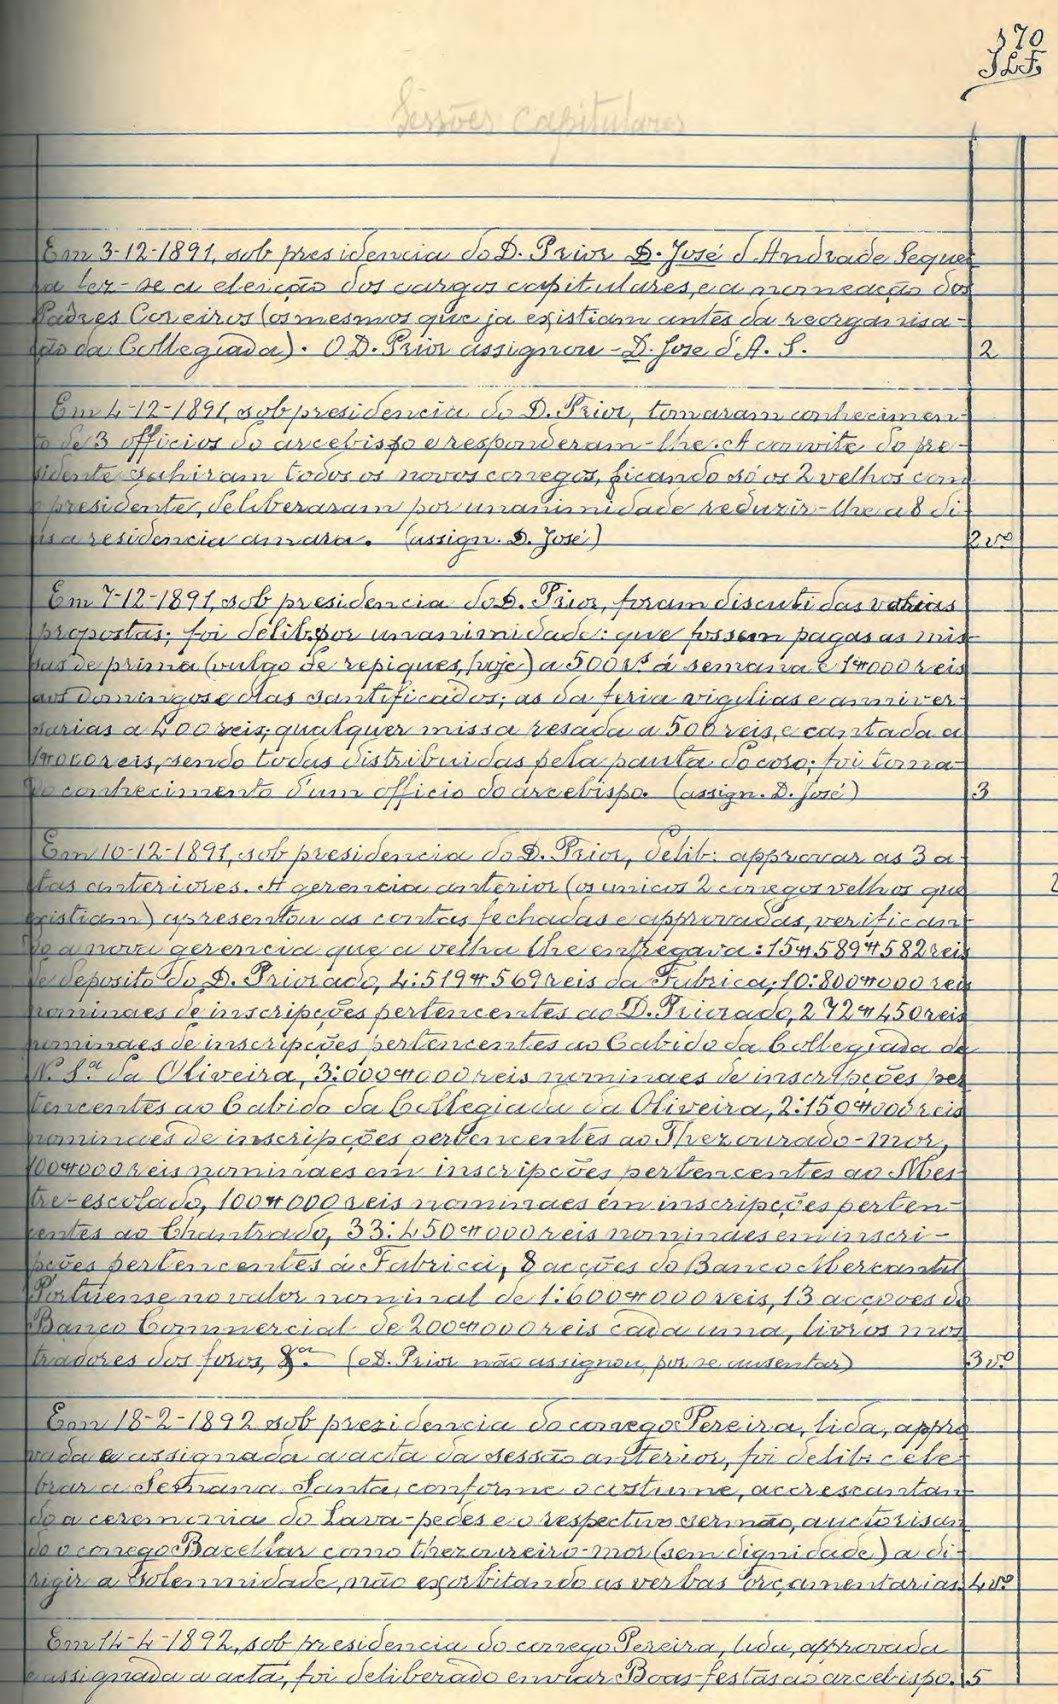 370
J.L.F.
Sessões capitulares
Em 3-12-1891, sob presidencia do D. Prior D. José d'Andrade Sequei
ra fez-se a eleição dos cargos capitulares, e a nomeação dos
Padres Coreiros (os mesmos que ja existiam antes da reorganisa-
ção da Collegiada). O D. Prior assignou - D. Jose d'A. S. 2
Em 4-12-1891, sob presidencia do D. Prior, tomaram conhecimen-
to de 3 officios do arcebispo e responderam-lhe. A convite do pre-
sidente sahiram todos os novos conegos, ficando só os 2 velhos com
o presidente, deliberaram por unanimidade reduzir-lhe a 8 di-
as a residencia amara. (assign. D. José) 2 vº
Em 7-12-1891, sob presidencia do D. Prior, foram discutidas varias
propostas; foi delib. por unanimidade: que fossem pagas as mis-
sas de prima (vulgo de repiques, hoje) a 500 rs á semana e 1$000 reis
aos domingos e dias santificados; as da feria vigilias e anniver-
sarias a 400 reis; qualquer missa resada a 500 reis, e cantada a
1$000 reis, sendo todas distribuidas pela pauta do coro; foi toma-
do conhecimento d'um officio do arcebispo. (assign. D. José) 3
Em 10-12-1891, sob presidencia do D. Prior, delib: approvar as 3 a-
tas anteriores. A gerencia anterior (os unicos 2 conegos velhos que
existiam) apresentou as contas fechadas e approvadas, verifican-
do a nova gerencia que a velha lhe entregava: 15$589$582 reis
de deposito do D. Priorado, 4:519$569 reis da Fabrica; 10:800$000 reis
nominaes de inscripções pertencentes ao D. Priorado, 272$450 reis
nominaes de inscripções pertencentes ao Cabido da Collegiada de
N. Sª da Oliveira, 3:000$000 reis nominaes de inscripções per
tencentes ao Cabido da Collegiada da Oliveira, 2:150$000 reis
nominaes de inscripções pertencentes ao Thezourado-mor,
100$000 reis nominaes em inscripções pertencentes ao Mes-
tre-escolado, 100$000 reis nominaes em inscripções perten-
centes ao Chantrado, 33:450$000 reis nominaes em inscri-
pções pertencentes á Fabrica, 8 acções do Banco Mercantil
Portuense no valor nominal de 1:600$000 reis, 13 acçoves do
Banco Commercial de 200$000 reis cada uma, livros mos
tradores dos foros, &ª. (o D. Prior não assignou, por se ausentar) 3 vº
Em 18-2-1892 sob prezidencia do conego Pereira, lida, appro
vada e assignada a acta da sessão anterior, foi delib: cele-
brar a Semana Santa, conforme o custume, accrescantan-
do a ceremonia do Lava-pedes e o respectivo sermão, auctorisan
do o conego Bacellar como thezoureiro-mor (sem dignidade) a di-
rigir a solemnidade, não exorbitando as verbas orçamentarias. 4 vº
Em 14-4-1892, sob presidencia do conego Pereira, lida, approvada
e assignada a acta, foi deliberado enviar Boas-festas ao arcebispo. 5